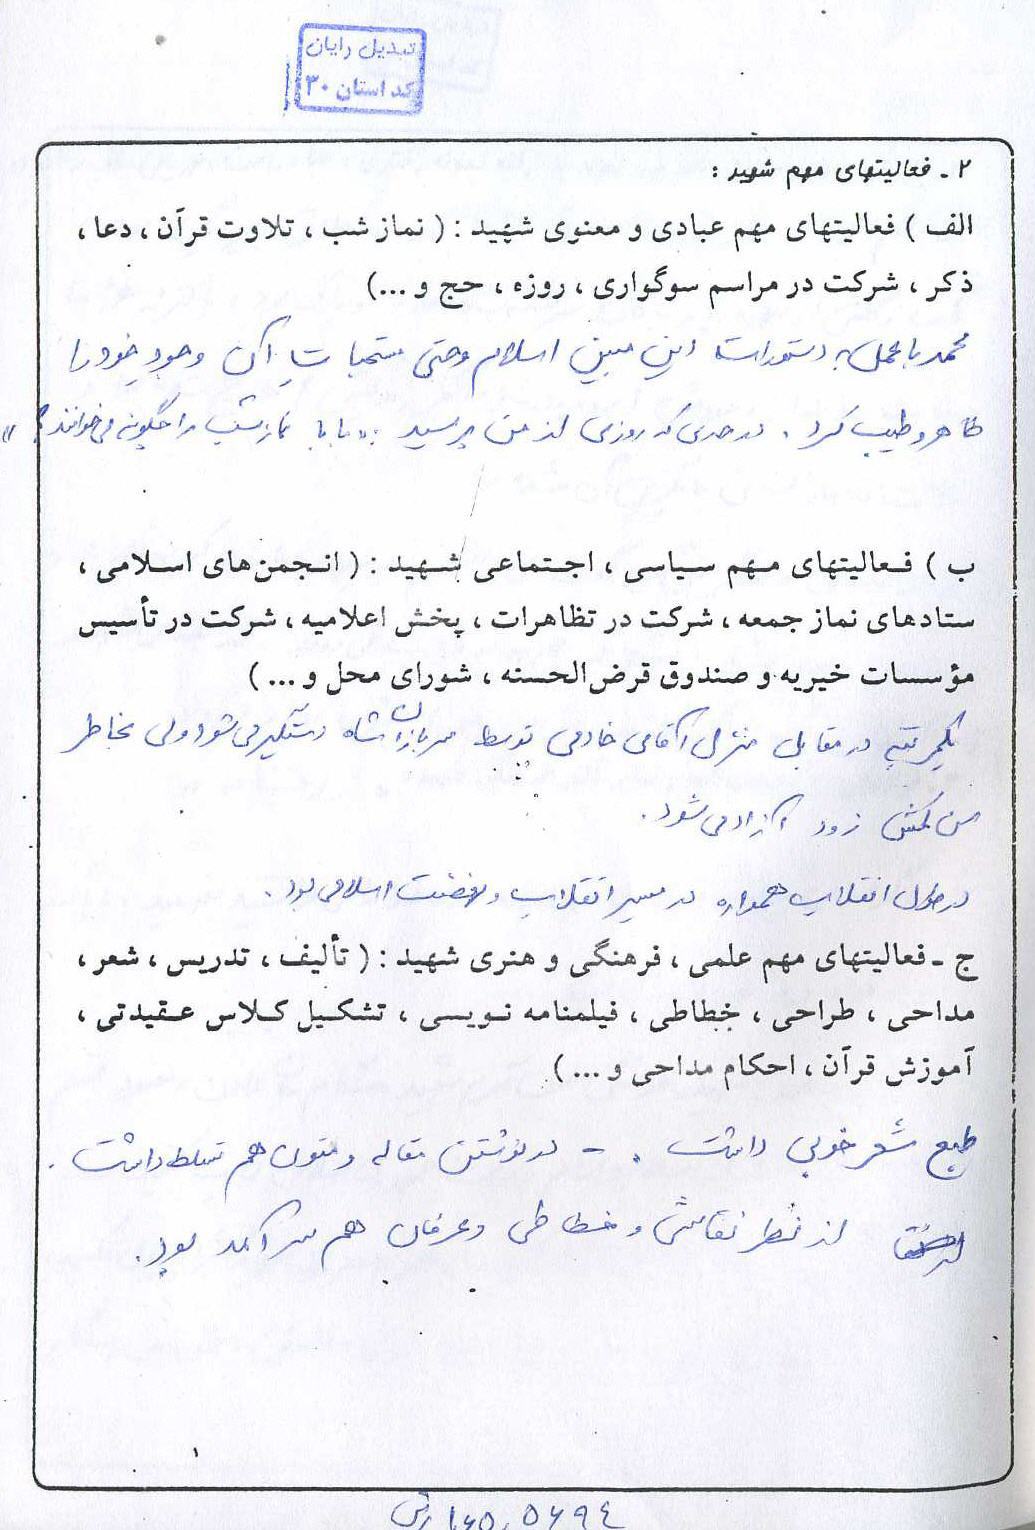 تبدیل رایان
کد استان ۳۰
۲ - فعالیتهای مهم شهید :
الف ) فعالیتهای مهم عبادی و معنوی شهید : ( نماز شب ، تلاوت قرآن ، دعا ،
ذکر ، شرکت در مراسم سوگواری ، روزه ، حج و ...)
محمد با عمل به دستورات دین مبین اسلام وحتی مستحبات آن وجود خود را
طاهر و طیب کرد . در حدی که روزی از من پرسید :« بابا نماز شب را چگونه می خوانند؟ »
ب ) فعالیتهای مهم سیاسی ، اجتماعی شهید : ( انجمن‌های اسلامی ،
ستادهای نماز جمعه ، شرکت در تظاهرات ، پخش اعلامیه ، شرکت در تأسیس
مؤسسات خیریه و صندوق قرض‌الحسنه ، شورای محل و ... )
یکمرتبه در مقابل منزل آقای خادمی توسط سربازان شاه دستگیر می شود ولی بخاطر
سن کمش زود آزاد می شود .
در طول انقلاب همواره در مسیر انقلاب و نهضت اسلامی بود .
ج - فعالیتهای مهم علمی ، فرهنگی و هنری شهید : ( تألیف ، تدریس ، شعر ،
مداحی ، طراحی ، خطاطی ، فیلمنامه نویسی ، تشکیل کلاس عقیدتی ،
آموزش قرآن ، احکام مداحی و ... )
طبع شعر خوبی داشت . - در نوشتن مقاله و متون هم تسلط داشت .
از نظر نقاشی و خطاطی و عرفان هم سرآمد بود .
۱